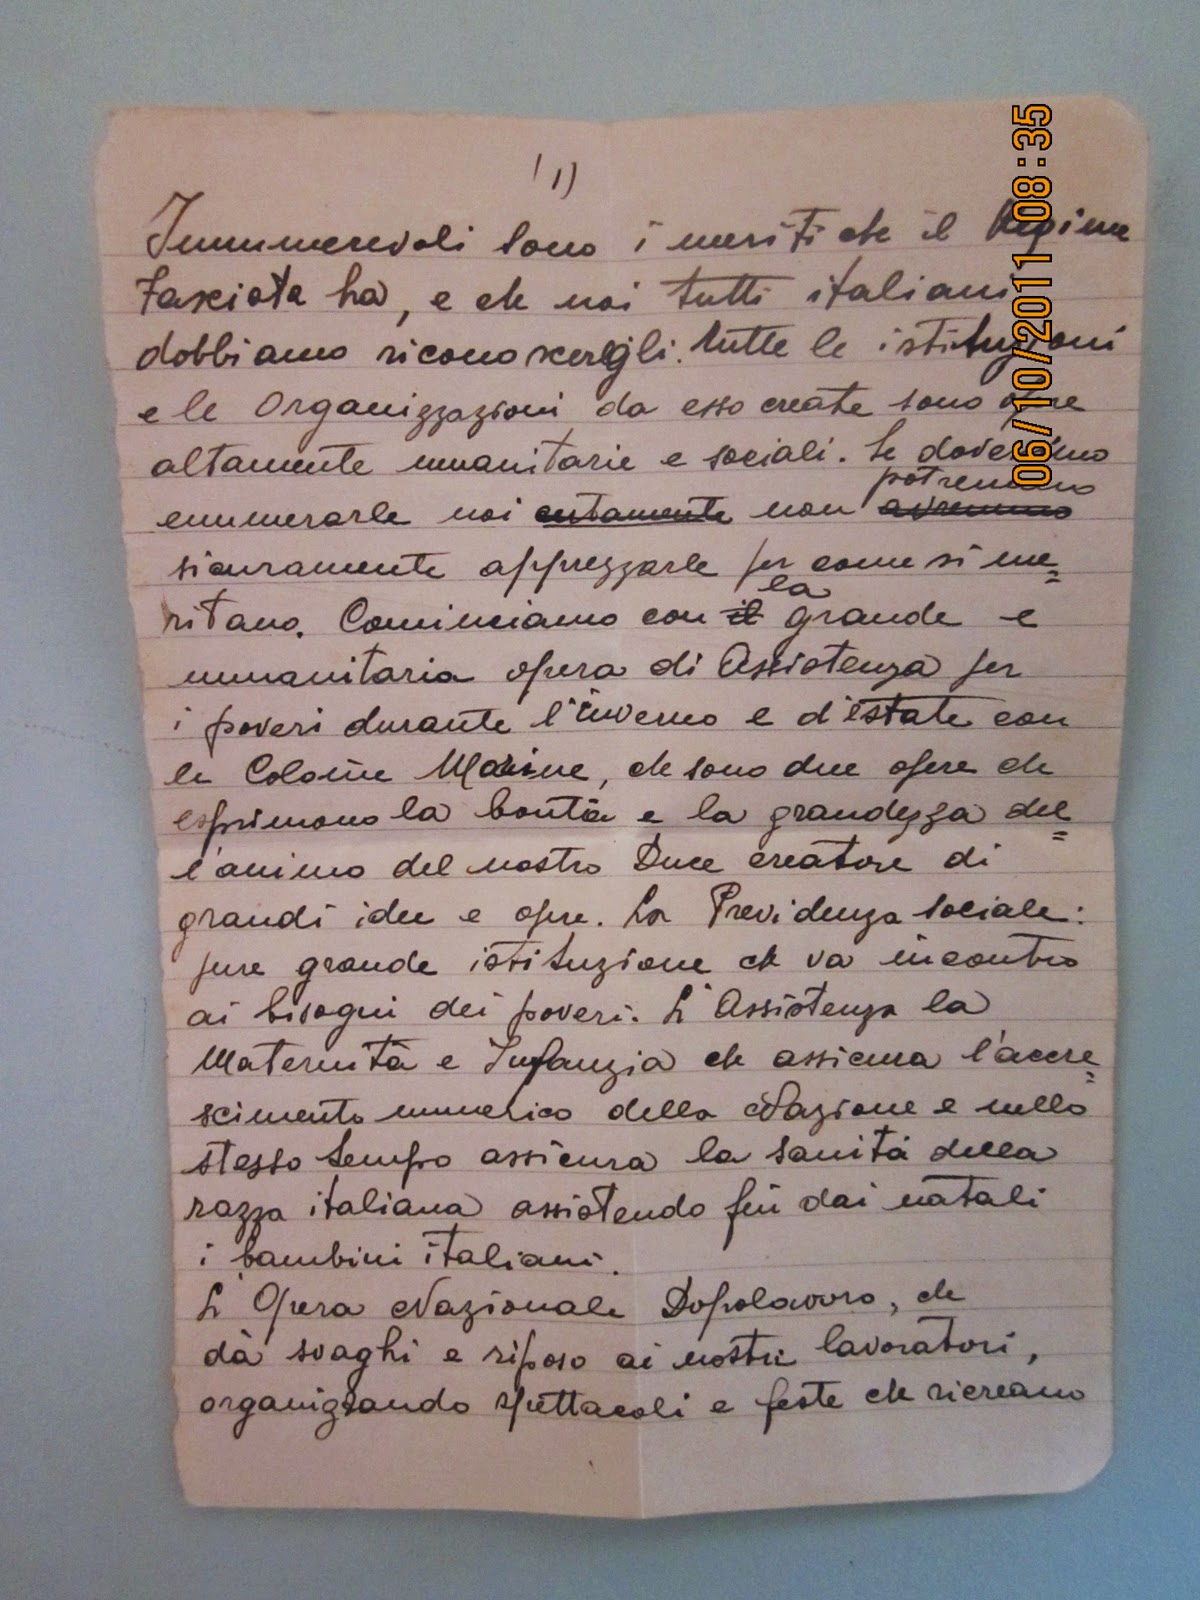 1)
Innumerevoli sono i meriti che il Regime
Fascista ha, e che noi tutti italiani
dobbiamo riconoscergli. Tutte le istituzioni
e le Organizzazioni da esso create sono opere
altamente umanitarie e sociali. Se dovessimo
potremmo
enumerarle noi certamente non avremmo
sicuramente apprezzarle per come si me=
la
ritano. Cominciamo con il grande e
umanitaria opera di Assistenza per
i poveri durante l'inverno e d'estate con
le Colonie Marine, che sono due opere che
esprimono la bontà e la grandezza del=
l'animo del nostro Duce creatore di
grandi idee e opere. La Previdenza sociale:
pure grande istituzione che va incontro
ai bisogni dei poveri. L'Assistenza la
Maternità e Infanzia che assicura l'accre=
scimento numerico della Nazione e nello
stesso tempo assicura la sanità della
razza italiana assistendo fin dai natali
i bambini italiani.
L'Opera Nazionale Dopolavoro, che
dà svaghi e riposo ai nostri lavoratori,
organizzando spettacoli e feste che ricreano
06/10/2011 08:35